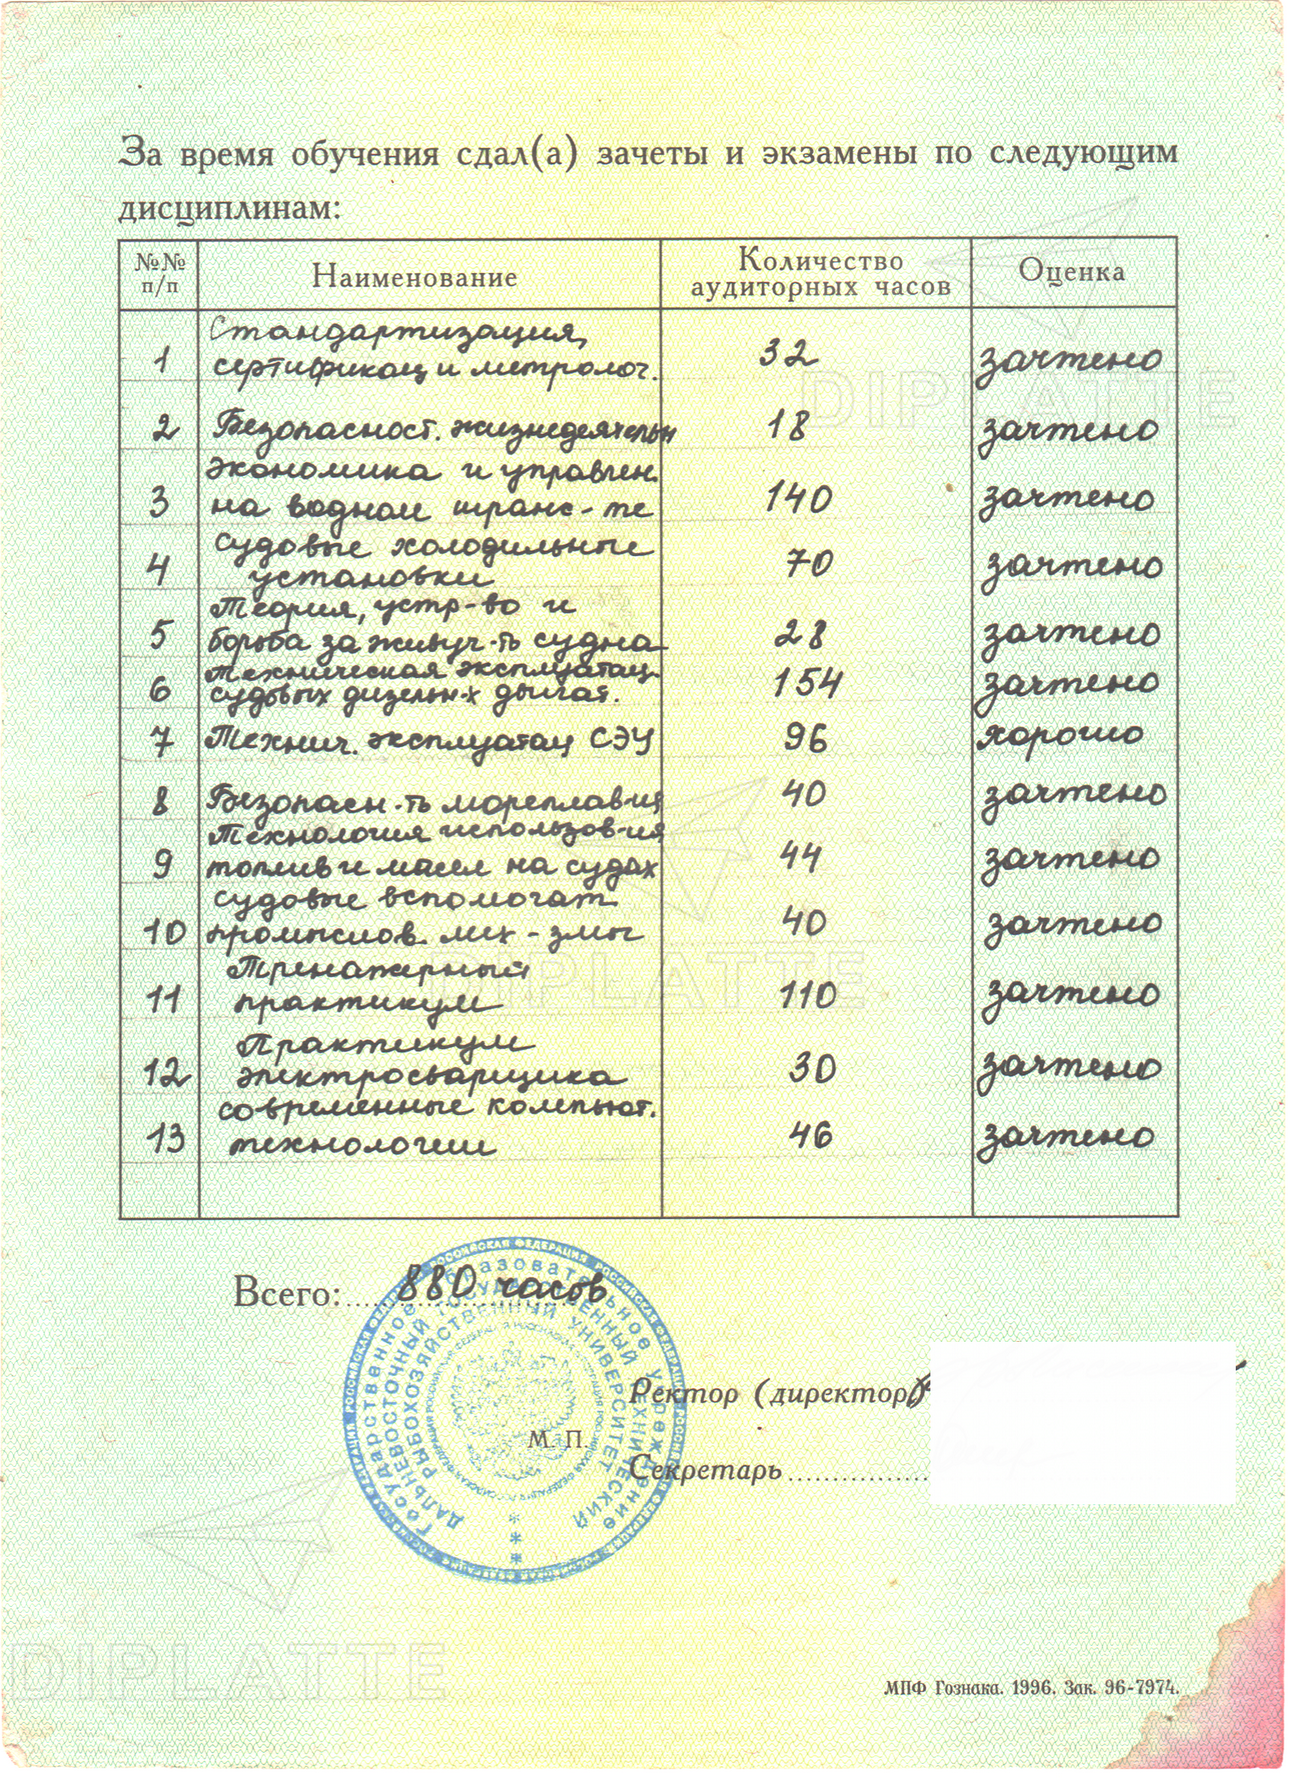 За время обучения сдал(а) зачеты и экзамены по следующим
дисциплинам:
№№ п/п Наименование Количество аудиторных часов Оценка
Стандартизация,
1 сертификац и метролог. 32 зачтено
2 Безопасност. жизнедеятельн 18 зачтено
Экономика и управлен.
3 на водном транс-те 140 зачтено
Судовые холодильные
4 установки 70 зачтено
Теория, устр-во и
5 борьба за живуч-ть судна 28 зачтено
Техническая эксплуатац.
6 судовых дизельн-х двигат. 154 зачтено
7 Технич. эксплуатац СЭУ 96 хорошо
8 Безопасн-ть мореплав-ия 40 зачтено
Технология использов-ия
9 топлив и масел на судах 44 зачтено
Судовые вспомогат.
10 промыслов. мех-змы 40 зачтено
Тренажерный
11 практикум 110 зачтено
Практикум
12 электросварщика 30 зачтено
Современные компьют.
13 технологии 46 зачтено
Всего: 880 часов
РОССИЙСКАЯ ФЕДЕРАЦИЯ
Государственное образовательное учреждение
ДАЛЬНЕВОСТОЧНЫЙ ГОСУДАРСТВЕННЫЙ ТЕХНИЧЕСКИЙ
РЫБОХОЗЯЙСТВЕННЫЙ УНИВЕРСИТЕТ
Ректор (директор)
М. П.
Секретарь
МПФ Гознака. 1996. Зак. 96-7974.
DIPLATTE
DIPLATTE
DIPLATTE